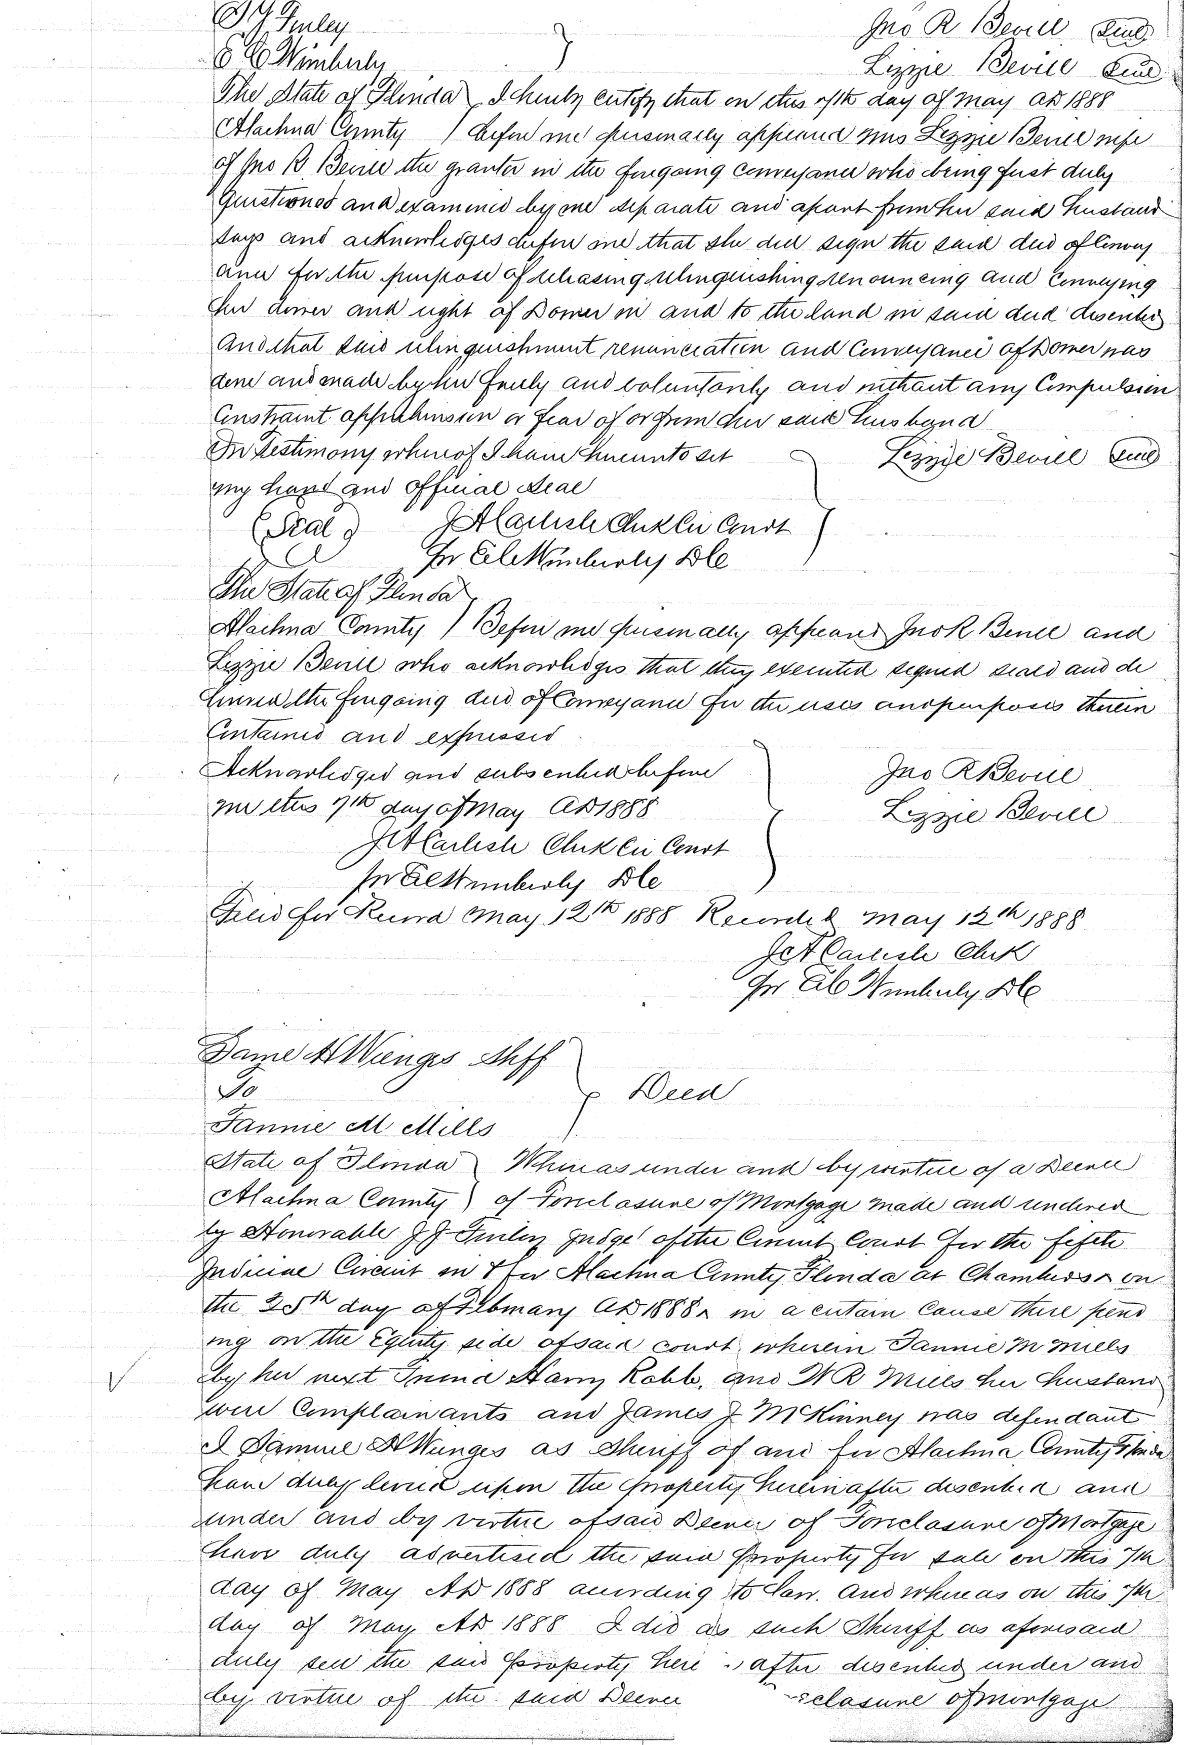 J J Finley
E C Wimberly
Jno R Bevill Seal
Lizzie Bevill Seal
The State of Florida I hereby certify that on this 7th day of May AD 1888
Alachua County before me personally appeared Mrs Lizzie Bevill wife
of Jno R. Bevill the grantor in the foregoing conveyance who being first duly
questioned and examined by me separate and apart from her said husband
says and acknowledges before me that she did sign the said deed of Convey
ance for the purpose of releasing relinquishing renouncing and Conveying
her dower and right of Dower in and to the land in said deed described
And that said relinquishment renunciation and Conveyance of Dower was
done and made by her freely and voluntarily and without any Compulsion
Constraint apprehension or fear of or from her said husband
In Testimony whereof I have hereunto set
my hand and official seal
Lizzie Bevill Seal
(Seal) J A Carlisle Clerk Cir Court
Per E C Wimberly D C
The State of Florida
Alachua County Before me personally appeared Jno R Bevill and
Lizzie Bevill who acknowledges that they executed signed seald and de
livered the foregoing deed of Conveyance for the uses and purposes therein
Contained and expressed
Acknowledged and subscribed before
me this 7th day of May AD 1888
Jno R Bevill
Lizzie Bevill
J A Carlisle Clerk Cir Court
Per E C Wimberly D C
Filed for Record May 12th 1888 Recorded May 12th 1888
J A Carlisle Clerk
Per E C Wimberly D C
H Wienges Shff
To
Deed
Fannie M. Mills
State of Florida Whereas under and by virtue of a Decree
Alachua County of Foreclosure of Mortgage made and rendered
by Honorable J J Finley Judge of the Circuit Court for the fifth
Judicial Circuit in & for Alachua County Florida at Chambers on
the 25th day of February AD 1888 in a certain Cause there pend
ing on the Equity side of said court wherein Fannie M Mills
by her next Friend Harry Robb, and W R Mills her husband
were Complainants and James J McKinney was defendant
I H Wienges as Sheriff of and for Alachua County Florida
have duly levied upon the property hereinafter described and
under and by virtue of said Decree of Foreclosure of Mortgage
have duly advertised the said property for sale on this 7th
day of May AD 1888 according to Law. And whereas on this 7th
day of May AD 1888 I did as such Sheriff as aforesaid
duly sell the said property here after described under and
by virtue of the said Decree closure of mortgage